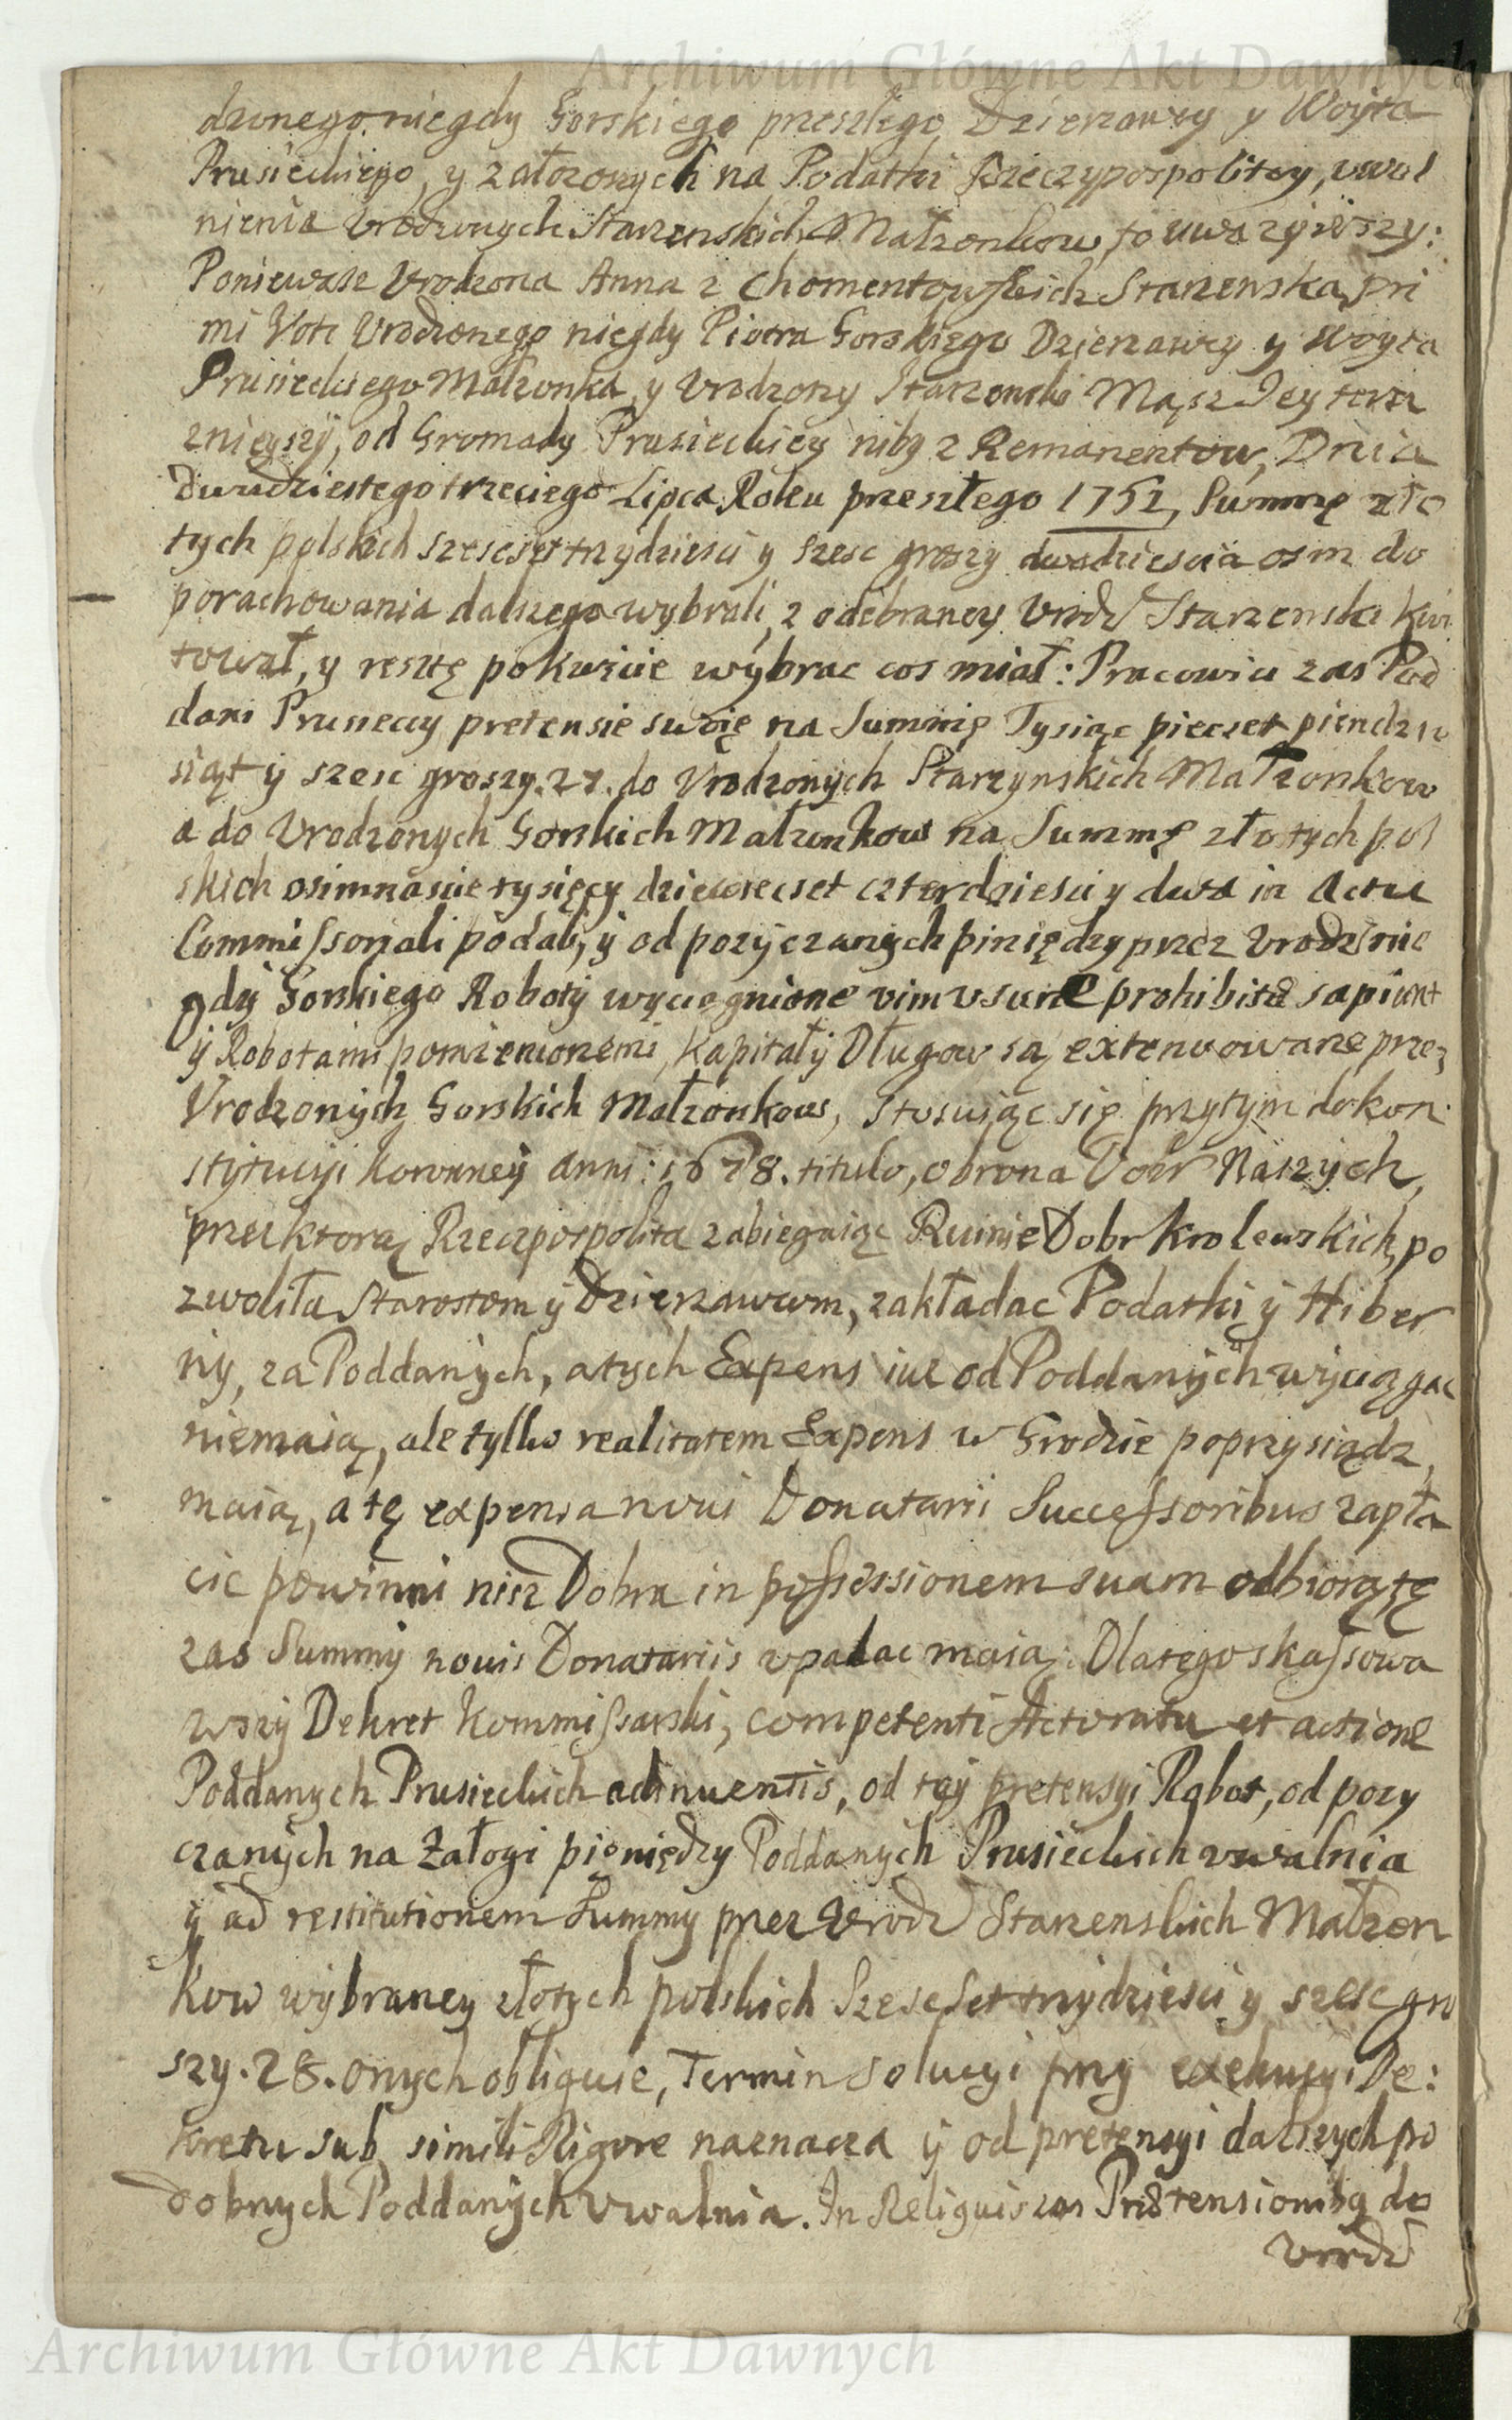 Archiwum Główne Akt Dawnych
dzonego niegdy Gorskiego przeszłego Dzierzawcy y Woyta
Prusieckiego, y załozonych na Podatki Rzeczypospolitey, uwol
nienia Vrodzonych Starzenskich Małzonkow, to uwazywszy:
Poniewasz Vrodzona Anna z Chomentowskich Starzenska, pri
mi Voti Vrodzonego niegdy Piotra Gorskiego Dzierzawcy y Woyta
Prusieckiego Małzonka, y Vrodzony Starzenski Mąsz Jey teraz
znieyszÿ, od Gromady Prusieckiey niby z Remanentow, Dnia
dwudziestego trzeciego Lipca Roku przeszłego 1752, Summę zło
tych polskich szescset trzydziesci y szesc groszy dwadziescia osm do
porachowania dalszego wybrali, z odebraney Vrodz Starzenski kwi
tował, y resztę pokuzcie wybrac cos miał: Pracowici zas Pod
dani Prusieccy pretensie swoię na Summę Tysiąc piecset piendzie
siąt ÿ szesc groszy. 27. do Vrodzonÿch Starzynskich Małzonkow
a do Vrodzonych Gorskich Małzonkow na Summę złotych pol
skich osimnascie tysięcy dziewiecset czterdziesci y dwa in Actu
Commissoriali podali, ÿ od pozÿczanych piniędzy przez Vrodz nie
gdÿ Gorskiego Robotÿ wyciągnione vim usuræ prohibitæ sapiunt
ÿ Robotami pomienionemi, Kapitałÿ Długow są extenuowane przez
Vrodzonÿch Gorskich Małzonkow, Stosuiąc się przytym do kon
stÿtucÿi Koronneÿ anni: 1678. titulo, obrona Dobr Naszÿch,
przez ktorą Rzeczpospolita zabiegaiąc Ruinie Dobr Krolewskich, po
zwoliła Starostom ÿ Dzierzawcom, zakładac Podatki ÿ Hiber
ny, za Poddanÿch, a tych Expens iuz od Poddanÿch wyciągac
niemaią, ale tylko realitatem Expens w Grodzie poprzysiądz
maią, a tę expensa novi Donatarii Successoribus zapła
cic powinni nisz Dobra in possessionem suam odbiorą, tę
zas Summÿ novis Donatariis upadac maią. Dlatego skassowa
wszÿ Dekret Kommissarski, competenti Actoratu et actione
Poddanych Prusieckich adinventis, od teÿ pretensyi Robot, od pozy
czanÿch na Załogi pieniędzy Poddanych Prusieckich uwalnia
ÿ ad restitutionem Summy przez Vrodz Starzenskich Małzon
kow wÿbraney złotych polskich Szescset trzydziesci y szesc gro
szy. 28. onych obliguie, Termin Solucyi przy exekucyi De:
kretu sub simili Rigore naznacza ÿ od pretensyi dalszych po
dobnych Poddanÿch Vwalnia. In Reliquis zas Prætensionibq do
Vrodz
Archiwum Główne Akt Dawnych